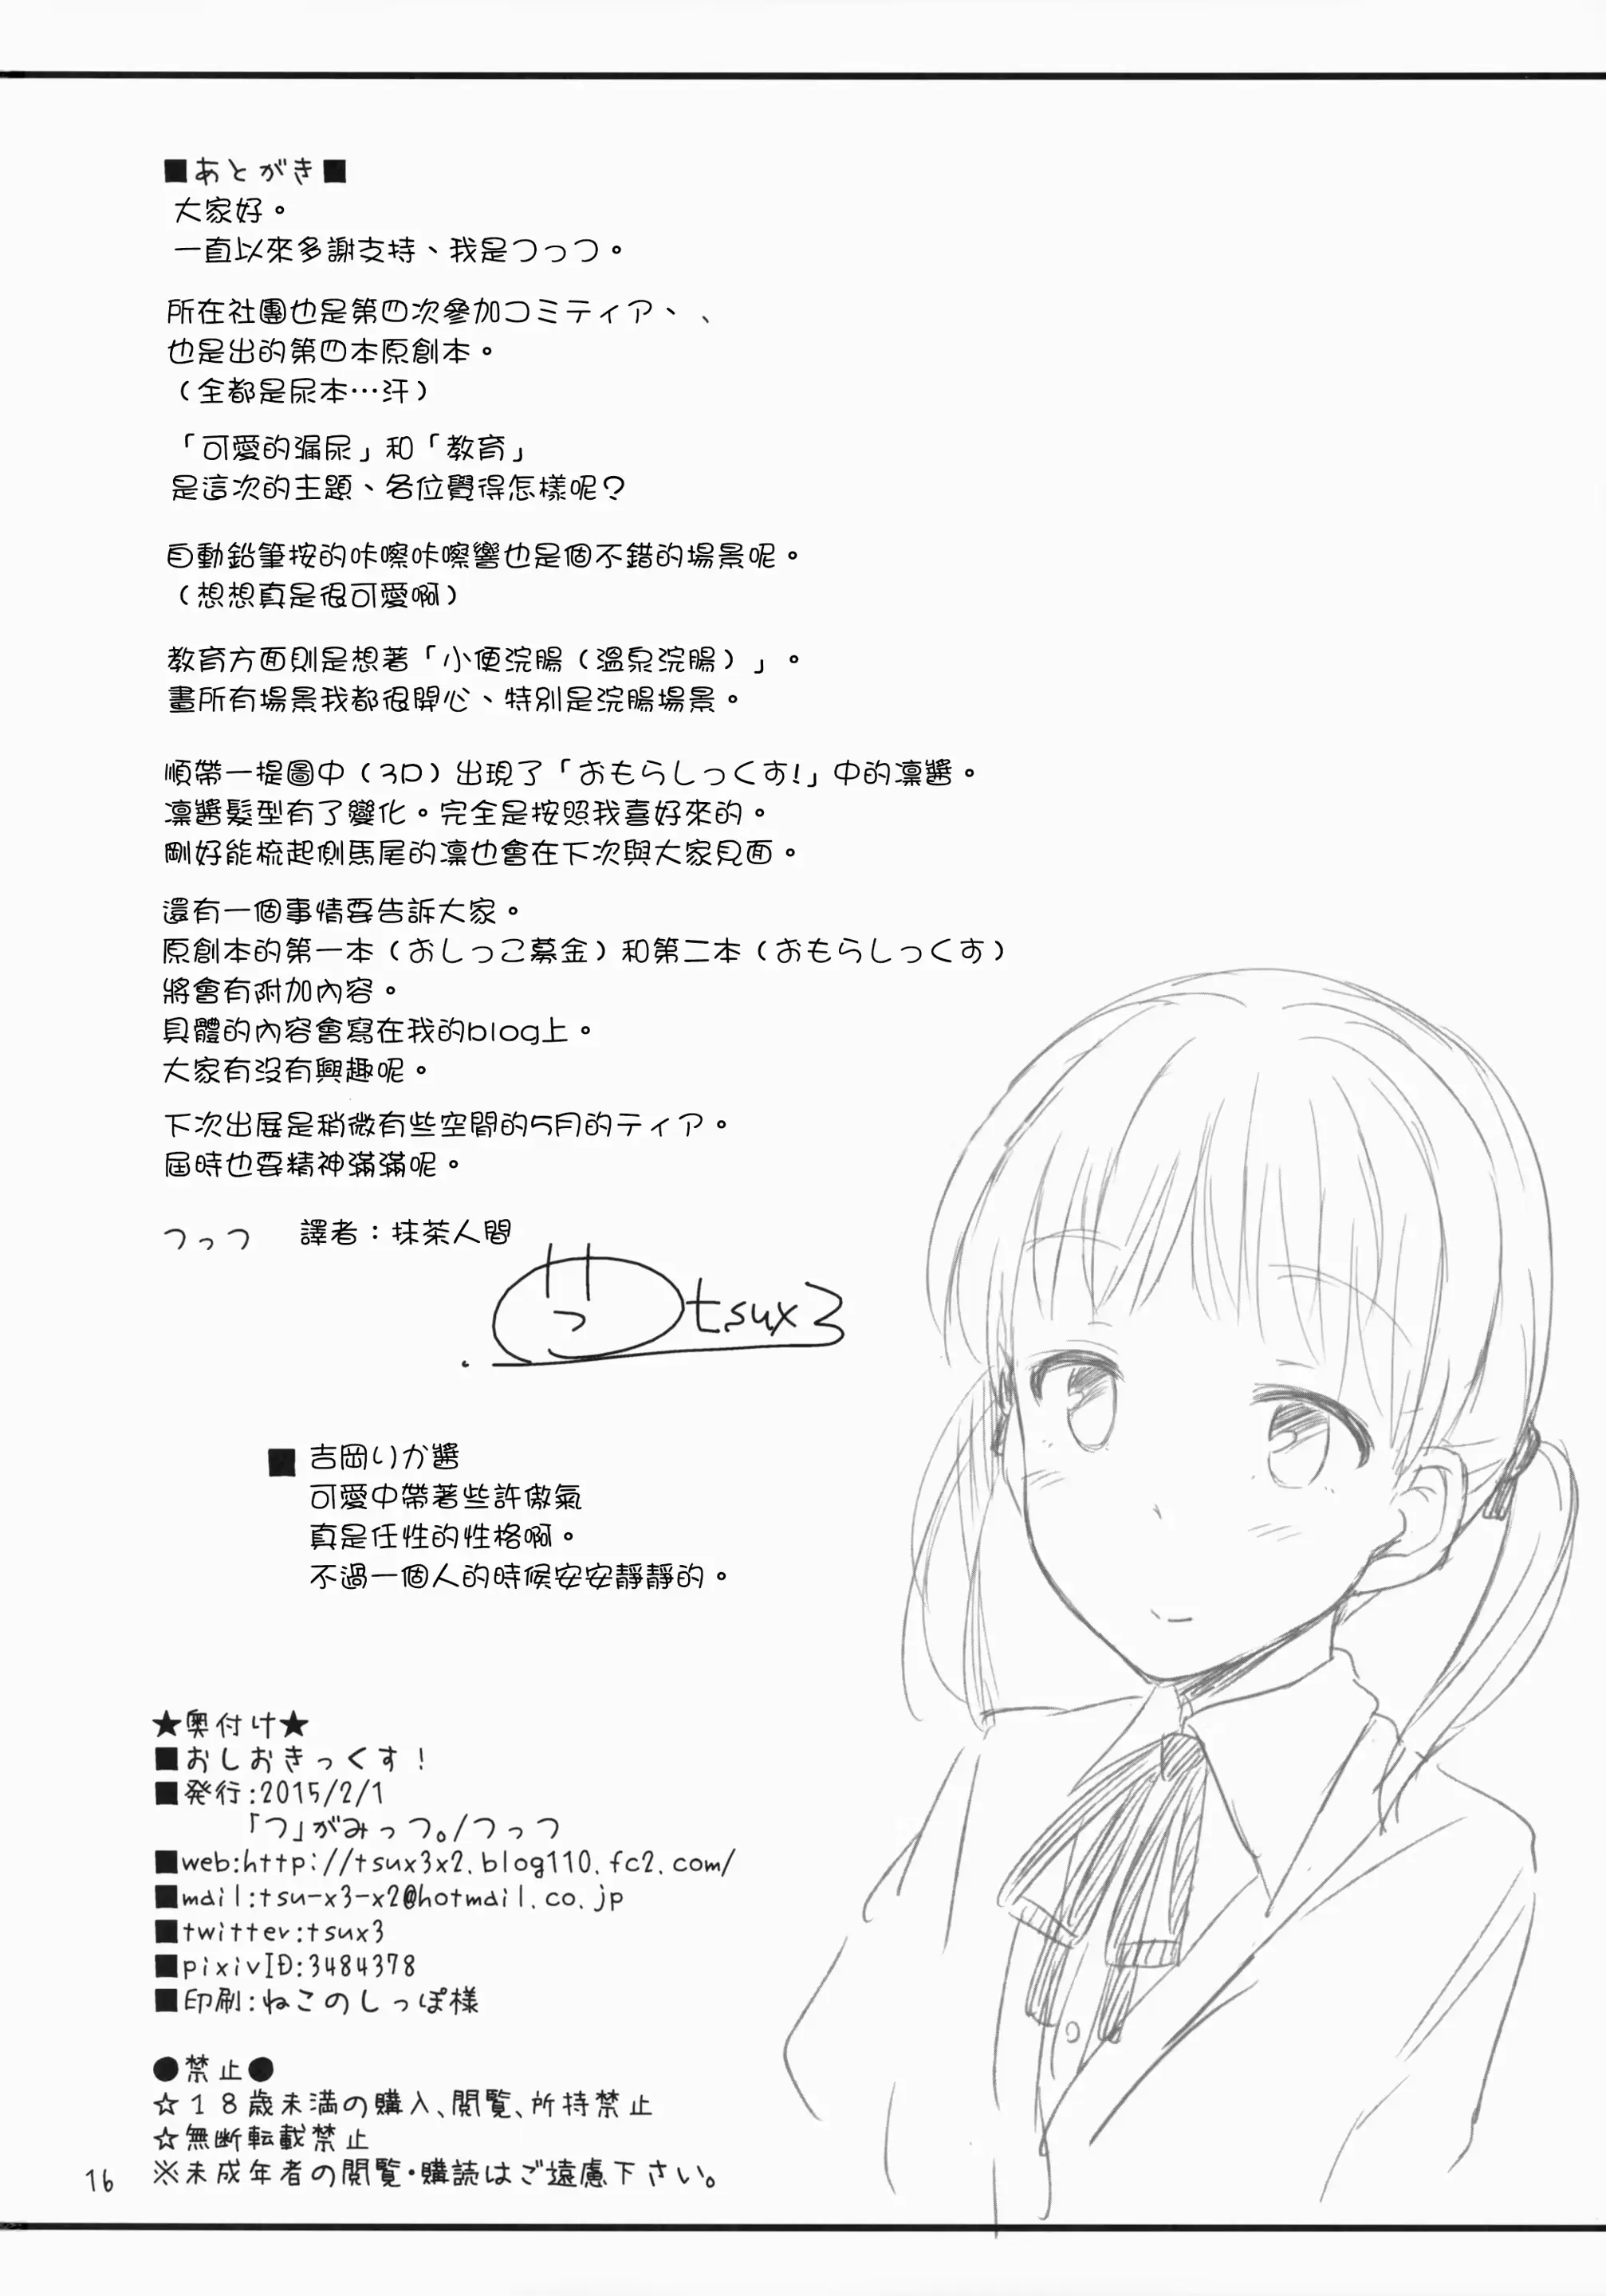 ■あとがき■
大家好。
一直以來多謝支持、我是つっつ。
所在社團也是第四次參加コミティア、、
也是出的第四本原創本。
（全都是尿本…汗）
「可愛的漏尿」和「教育」
是這次的主題、各位覺得怎樣呢？
自動鉛筆按的咔嚓咔嚓響也是個不錯的場景呢。
（想想真是很可愛啊）
教育方面則是想著「小便浣腸（溫泉浣腸）」。
畫所有場景我都很開心、特別是浣腸場景。
順帶一提圖中（3P）出現了「おもらしっくす!」中的凜醬。
凜醬髮型有了變化。完全是按照我喜好來的。
剛好能梳起側馬尾的凜也會在下次與大家見面。
還有一個事情要告訴大家。
原創本的第一本（おしっこ募金）和第二本（おもらしっくす）
將會有附加內容。
具體的內容會寫在我的blog上。
大家有沒有興趣呢。
下次出展是稍微有些空閒的5月的ティア。
屆時也要精神滿滿呢。
つっつ 譯者：抹茶人間
つ tsux3
■ 吉岡りか醬
可愛中帶著些許傲氣
真是任性的性格啊。
不過一個人的時候安安靜靜的。
★奥付け★
■おしおきっくす！
■発行:2015/2/1
「つ」がみっつ。/つっつ
■web:http://tsux3x2.blog110.fc2.com/
■mail:tsu-x3-x2@hotmail.co.jp
■twitter:tsux3
■pixivID:3484378
■印刷:ねこのしっぽ様
●禁止●
☆１８歳未満の購入、閲覧、所持禁止
☆無断転載禁止
※未成年者の閲覧・購読はご遠慮下さい。
16